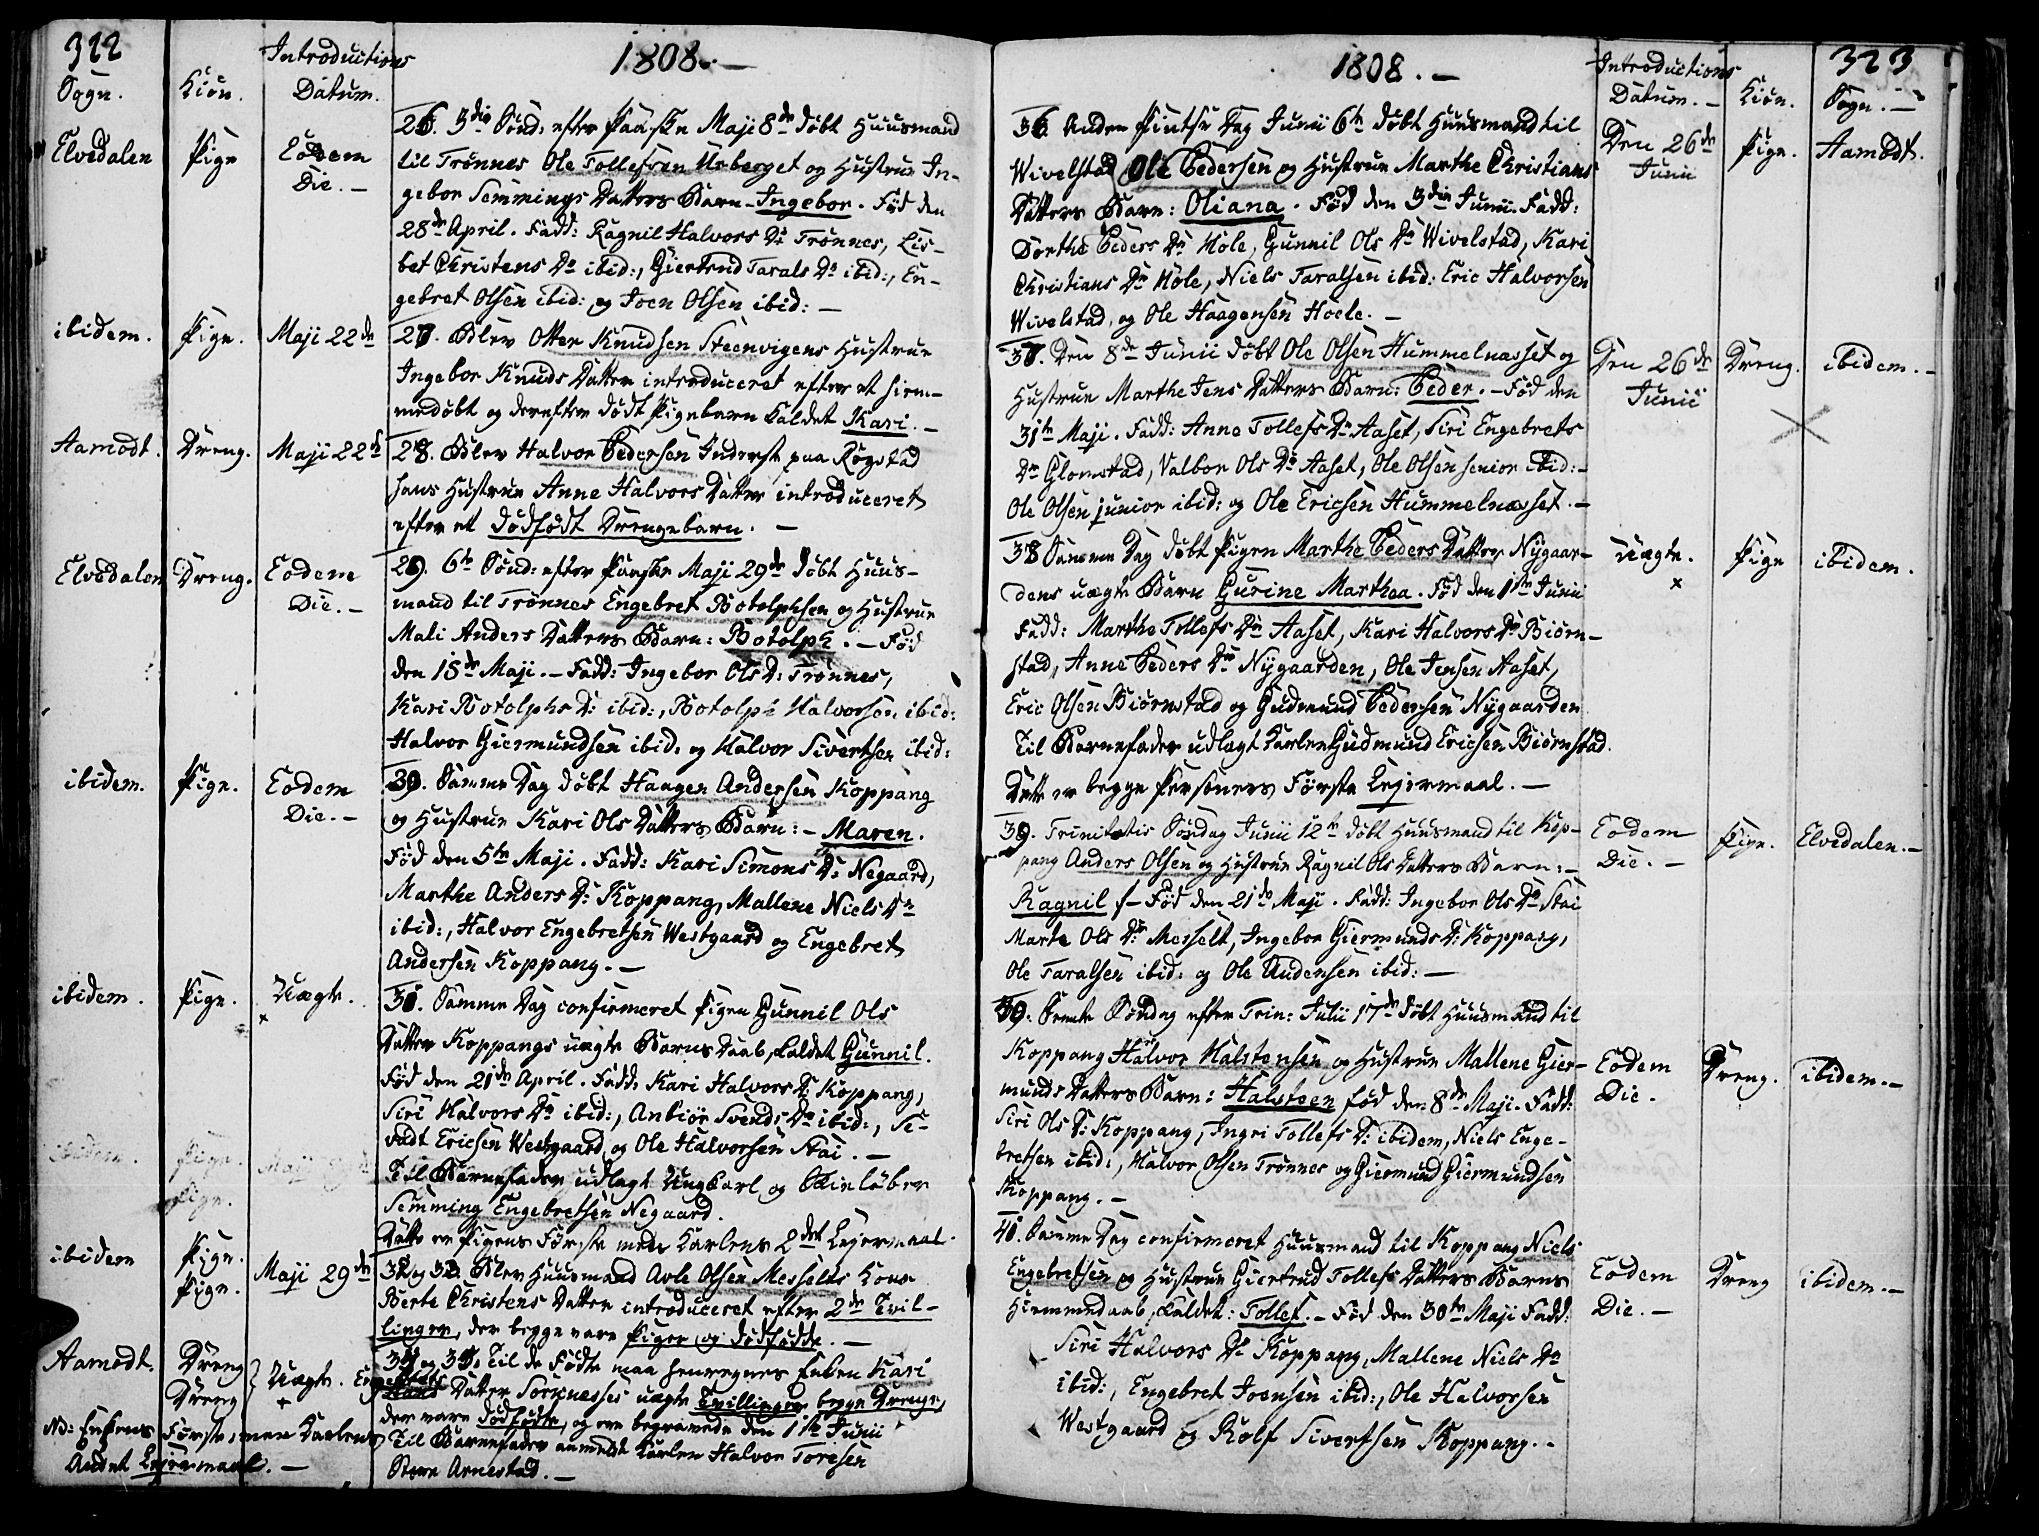 322
Introductions
1808. —
Sogn. Kiön. Datum.
Elvedalen Pige Eodem Die. —
26. 3die Sönd: efter Paaske Maji 8de döbt Huusmand
til Trönnes Ole Tollefsen Urberget og Hustrue In-
gebor Semmings Datters Barn - Ingebor. Föd den
28de April. Fadd: Ragnil Halvors Dr Trönnes, Lis-
bet Christens Dr ibid:, Giertrud Tarals Dr ibid:, En-
gebret Olsen ibid: og Joen Olsen ibid: —
ibidem. Pige. Maji 22de
27. Blev Otter Knudsen Steenvigens Hustrue
Ingebor Knuds Datter introduceret efter et hiem-
medöbt og derefter dödt Pigebarn kaldet Kari. —
Aamodt. Dreng. Maji 22de
28. Blev Halvor Pedersen Inderst paa Rögstad
hans Hustrue Anne Halvors Datter introduceret
efter et dödfödt Drengebarn. —
Elvedalen Dreng. Eodem Die. —
29. 6te Sönd: efter Paaske Maji 29de döbt Huus-
mand til Trönnes Engebret Botolphsen og Hustrue
Mali Anders Datters Barn: Botolph. — Föd
den 18de Maji. — Fadd: Ingebor Ols D: Trönnes,
Kari Botolphs D: ibid:, Botolph Halvorsen ibid:
Halvor Giermundsen ibid: og Halvor Sivertsen ibid:
ibidem. Pige. Eodem Die. —
30. Samme Dag döbt Haagen Andersen Koppang
og Hustrue Kari Ols Datters Barn: — Maren.
Föd den 5te Maji. Fadd: Kari Simons D: Negaard,
Marthe Anders D: Koppang, Mallene Niels Dr
ibid:, Halvor Engebretsen Westgaard og Engebret
Andersen Koppang. —
ibidem. Pige. Uægte. ×
31. Samme Dag confirmeret Pigen Gunnil Ols
Datter Koppangs uægte Barns Daab, kaldet Gunnil.
Föd den 21de April. Fadd: Kari Halvors D: Koppang,
Siri Halvors Dr ibid:, Anbiör Svends Dr ibid:, Si-
vadt Ericsen Westgaard og Ole Halvorsen Stai. —
Til Barnefader udlagt Ungkarl og Skielöber
Semming Engebretsen Negaard.
Dette er Pigens Förste men Karlens 2det Lejermaal.
ibidem Pige. Pige. Maji 29de
32 og 33. Blev Huusmand Avle Olsen Messelts Kone
Berte Christens Datter introduceret efter 2de Tvil-
linger, der begge vare Piger og dödfödte. —
Aamodt. Dreng Dreng } Uægte. ×
34 og 35. Til de Födte maa henregnes Enken Kari
Engebrets Datter Sornesses uægte Tvillinger begge Drenge,
der vare dödfödte, og ere begravede den 1ste Junii
Til Barnefader anmeldt Karlen Halvor Toresen
Store Arnestad. —
NB: Enkens Förste, men Karlens
Andet Lejermaal. —
1808. —
Introductions
323
Datum. — Kiön. Sogn. —
36. Anden Pintse Dag Junii 6te döbt Huusmand til
Wivelstad Ole Pedersen og Hustrue Marthe Christians
Datters Barn: Oliana. Föd den 3die Junii. Fadd:
Dorthe Peders Dr Hole, Gunnil Ols Dr Wivelstad, Kari
Christians Dr Hole, Niels Taralsen ibid: Eric Halvorsen
Wivelstad, og Ole Haagensen Hoele. —
Den 26de Junii Pige. Aamodt.
37. Den 8de Junii döbt Ole Olsen Hummelnæsset og
Hustrue Marthe Jens Datters Barn: Peder. — Föd den
31te Maji. Fadd: Anne Tollefs Dr Aaset, Siri Engebrets
Dr Glomstad, Valbor Ols Dr Aaset, Ole Olsen senior ibid: —
Ole Olsen junior ibid: og Ole Ericsen Hummelnæsset. —
Den 26de Junii Dreng. ibidem. —
38 Samme Dag döbt Pigen Marthe Peders Datter Nygaar-
dens uægte Barn Gurine Marthea. Föd den 1ste Junii
Fadd: Marthe Tollefs Dr Aaset, Kari Halvors Dr Biörn-
stad, Anne Peders Dr Nygaarden, Ole Jensen Aaset,
Eric Olsen Biörnstad og Gudmund Pedersen Nygaarden
Til Barnefader udlagt Karlen Gudmund Ericsen Biörnstad.
Dette er begge Personers Förste Lejermaal. —
Uægte. × Pige ibidem.
39. Trinitatis Söndag Junii 12te döbt Huusmand til Kop-
pang Anders Olsen og Hustrue Ragnil Ols Datters Barn: —
Ragnil — Föd den 21de Maji. Fadd: Ingebor Ols Dr Stai
Marte Ols Dr Messelt, Ingebor Giermunds D: Koppang,
Ole Taralsen ibid: og Ole Audensen ibid: —
Eodem Die. — Pige. Elvedalen. —
Söndag efter Trin: Julii 17de döbt Huusmand til
Koppang Halvor Halstensen og Hustrue Mallene Gier-
munds Datters Barn: Halsteen föd den 8de Maji. Fadd:
Siri Ols D: Koppang, Ingri Tollefs D: ibidem, Niels Enge-
bretsen ibid:, Halvor Olsen Trönnes og Giermund Giermundsen
Koppang. —
Eodem Die. Dreng. ibidem. —
41. Samme Dag confirmeret Huusmand til Koppang Niels
Engebretsen og Hustrue Giertrud Tollefs Datters Barns
Hiemmedaab, kaldet: Tollef. — Föd den 30te Maji Fadd:
Siri Halvors Dr Koppang, Mallene Niels Dr
ibid:, Engebret Joensen ibid:, Ole Halvorsen
Westgaard og Rolf Sivertsen Koppang. —
Eodem Die. — Dreng ibidem. —